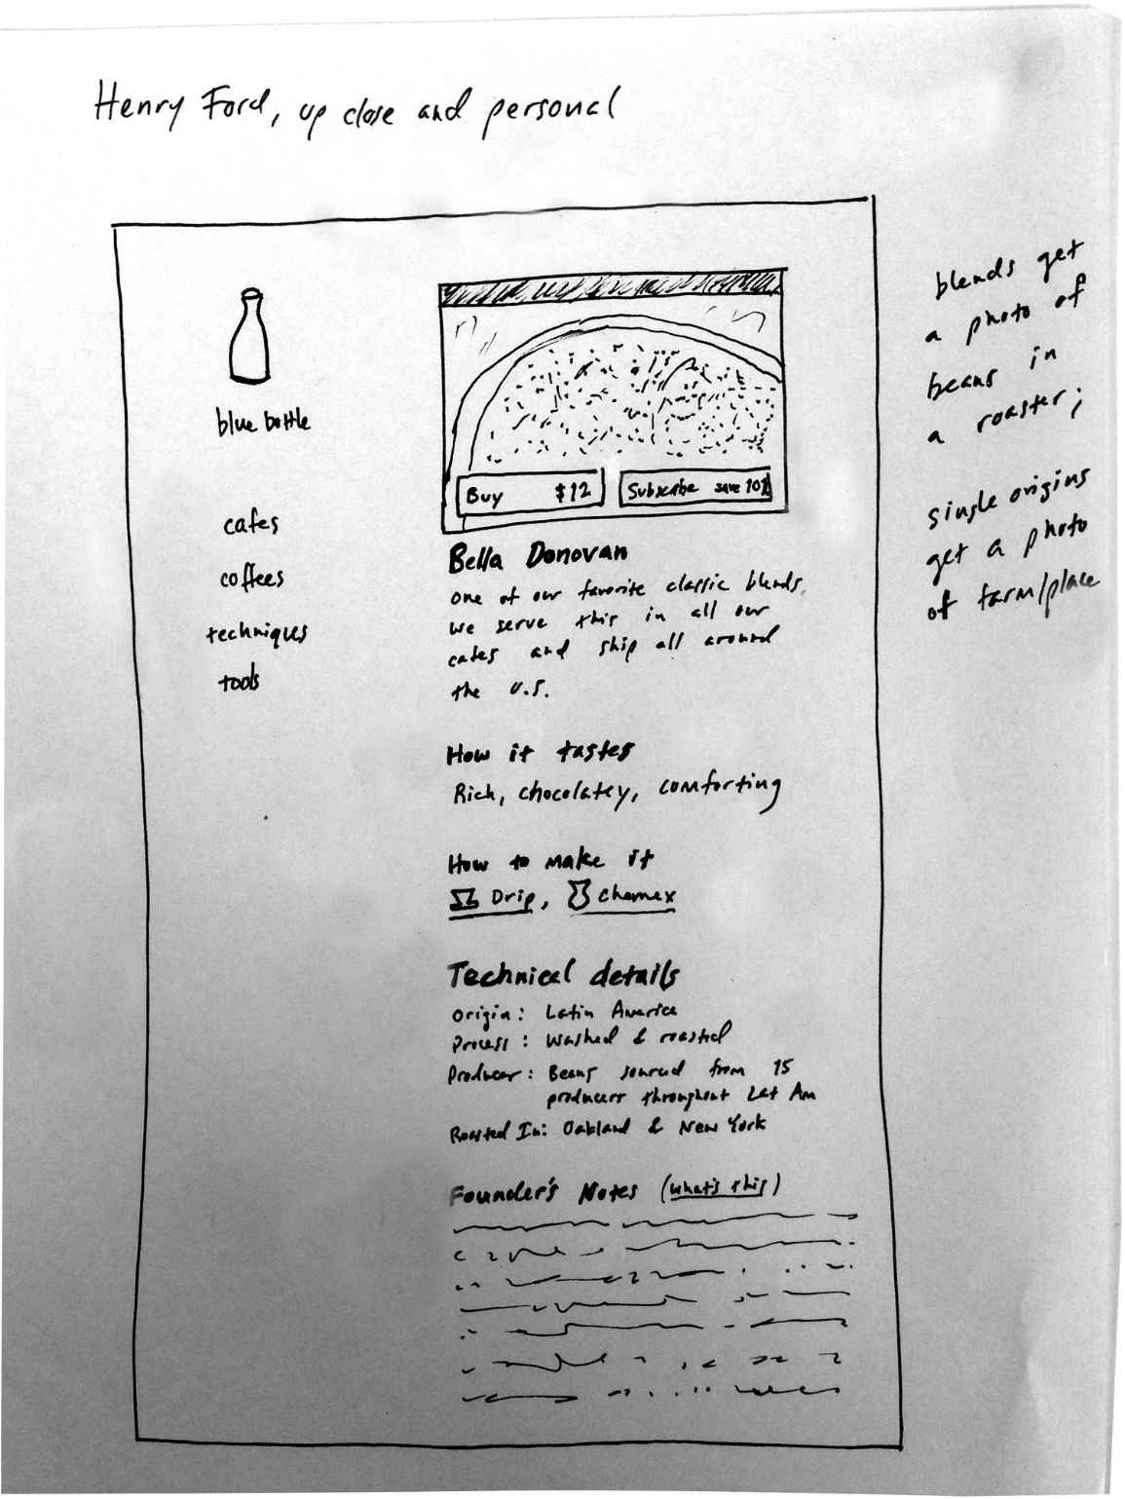 Henry Ford, up close and personal
blue bottle
cafes
coffees
techniques
tools
Buy $12
Subscribe save 10%
Bella Donovan
One of our favorite classic blends.
We serve this in all our
cafes and ship all around
the U.S.
How it tastes
Rich, chocolatey, comforting
How to make it
Drip, Chemex
Technical details
Origin: Latin America
Process: Washed & roasted
Producer: Beans sourced from 15
producers throughout Lat Am
Roasted In: Oakland & New York
Founder's Notes (what's this)
blends get
a photo of
beans in
a roaster;
single origins
get a photo
of farm/place